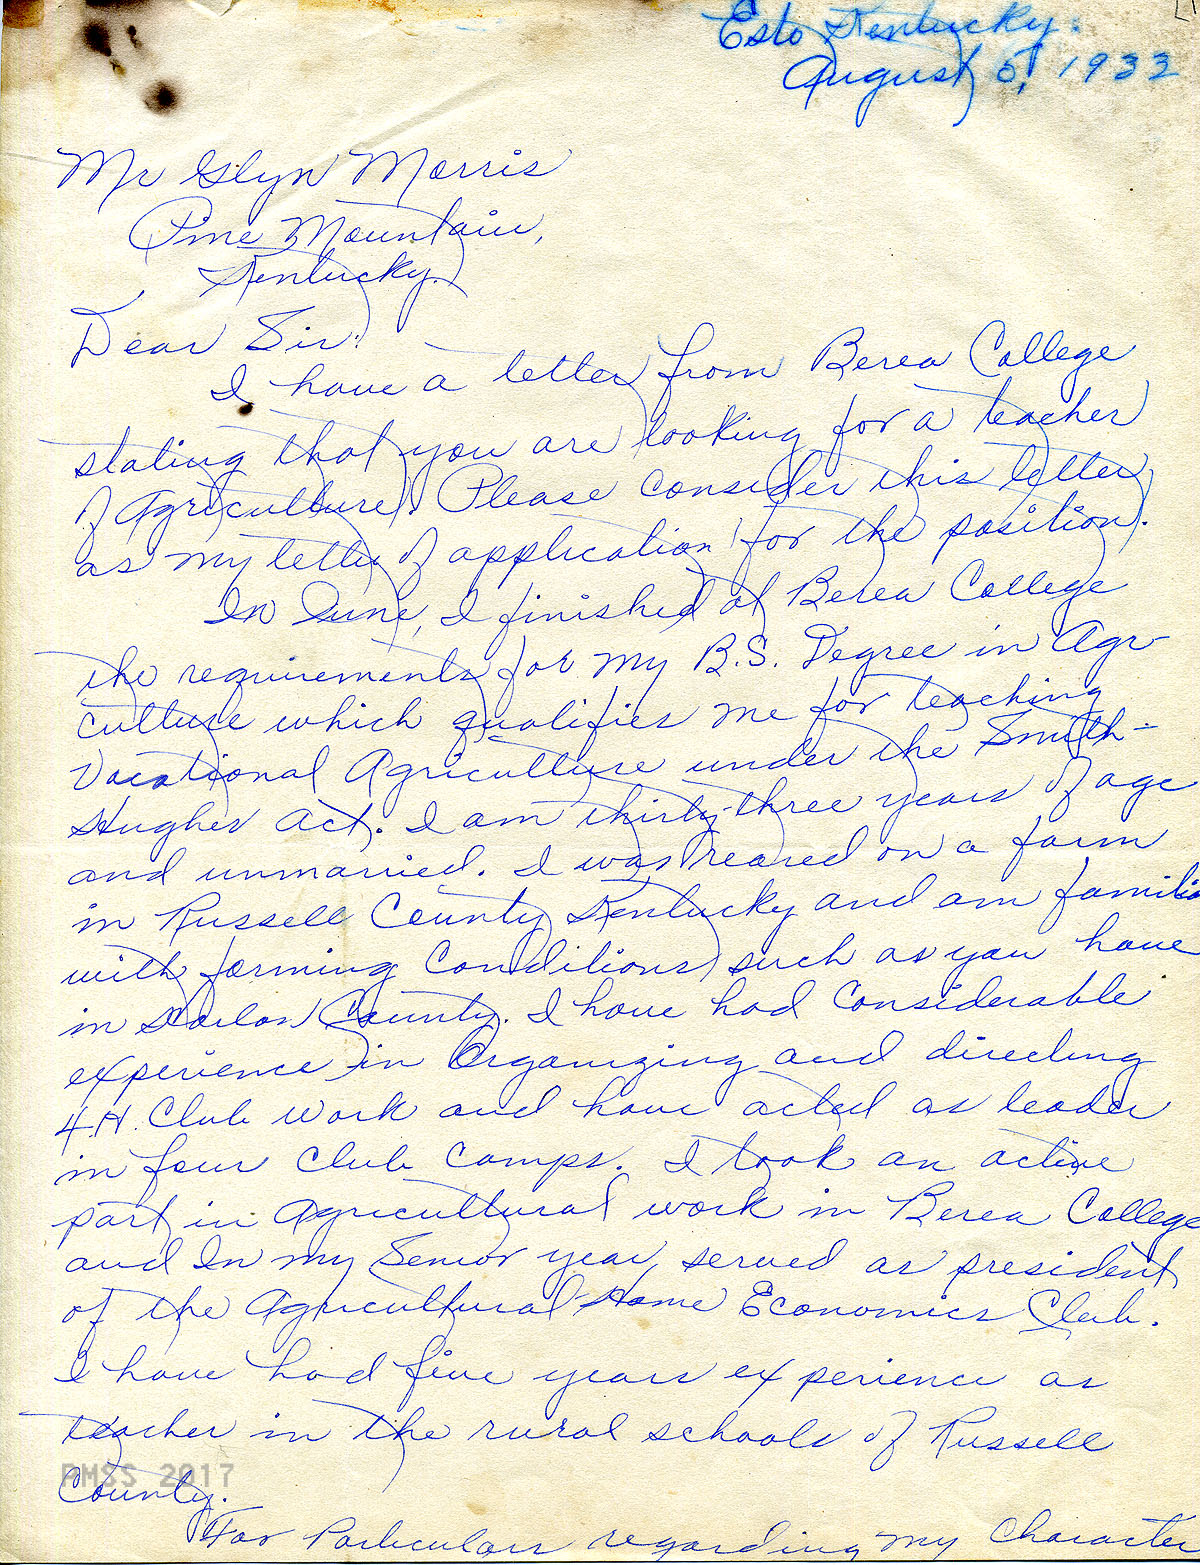 Esto Kentucky.
August 5, 1933
Mr Glyn Morris
Pine Mountain,
Kentucky.
Dear Sir:
I have a letter from Berea College
stating that you are looking for a teacher
of Agriculture. Please consider this letter
as my letter of application for the position.
In June, I finished at Berea College
the requirements for my B.S. Degree in Agr-
culture which qualifies me for teaching
Vocational Agriculture under the Smith-
Hughes Act. I am thirty-three years of age
and unmarried. I was reared on a farm
in Russell County Kentucky and am familia
with farming conditions such as you have
in Harlan County. I have had considerable
experience in Organizing and directing
4.H. Club work and have acted as leader
in four club camps. I took an active
part in Agricultural work in Berea College
and In my Senior year, served as president
of the Agricultural-Home Economics Club.
I have had five years experience as
teacher in the rural schools of Russell
PMSS 2017
County.
For Particulars regarding my Character